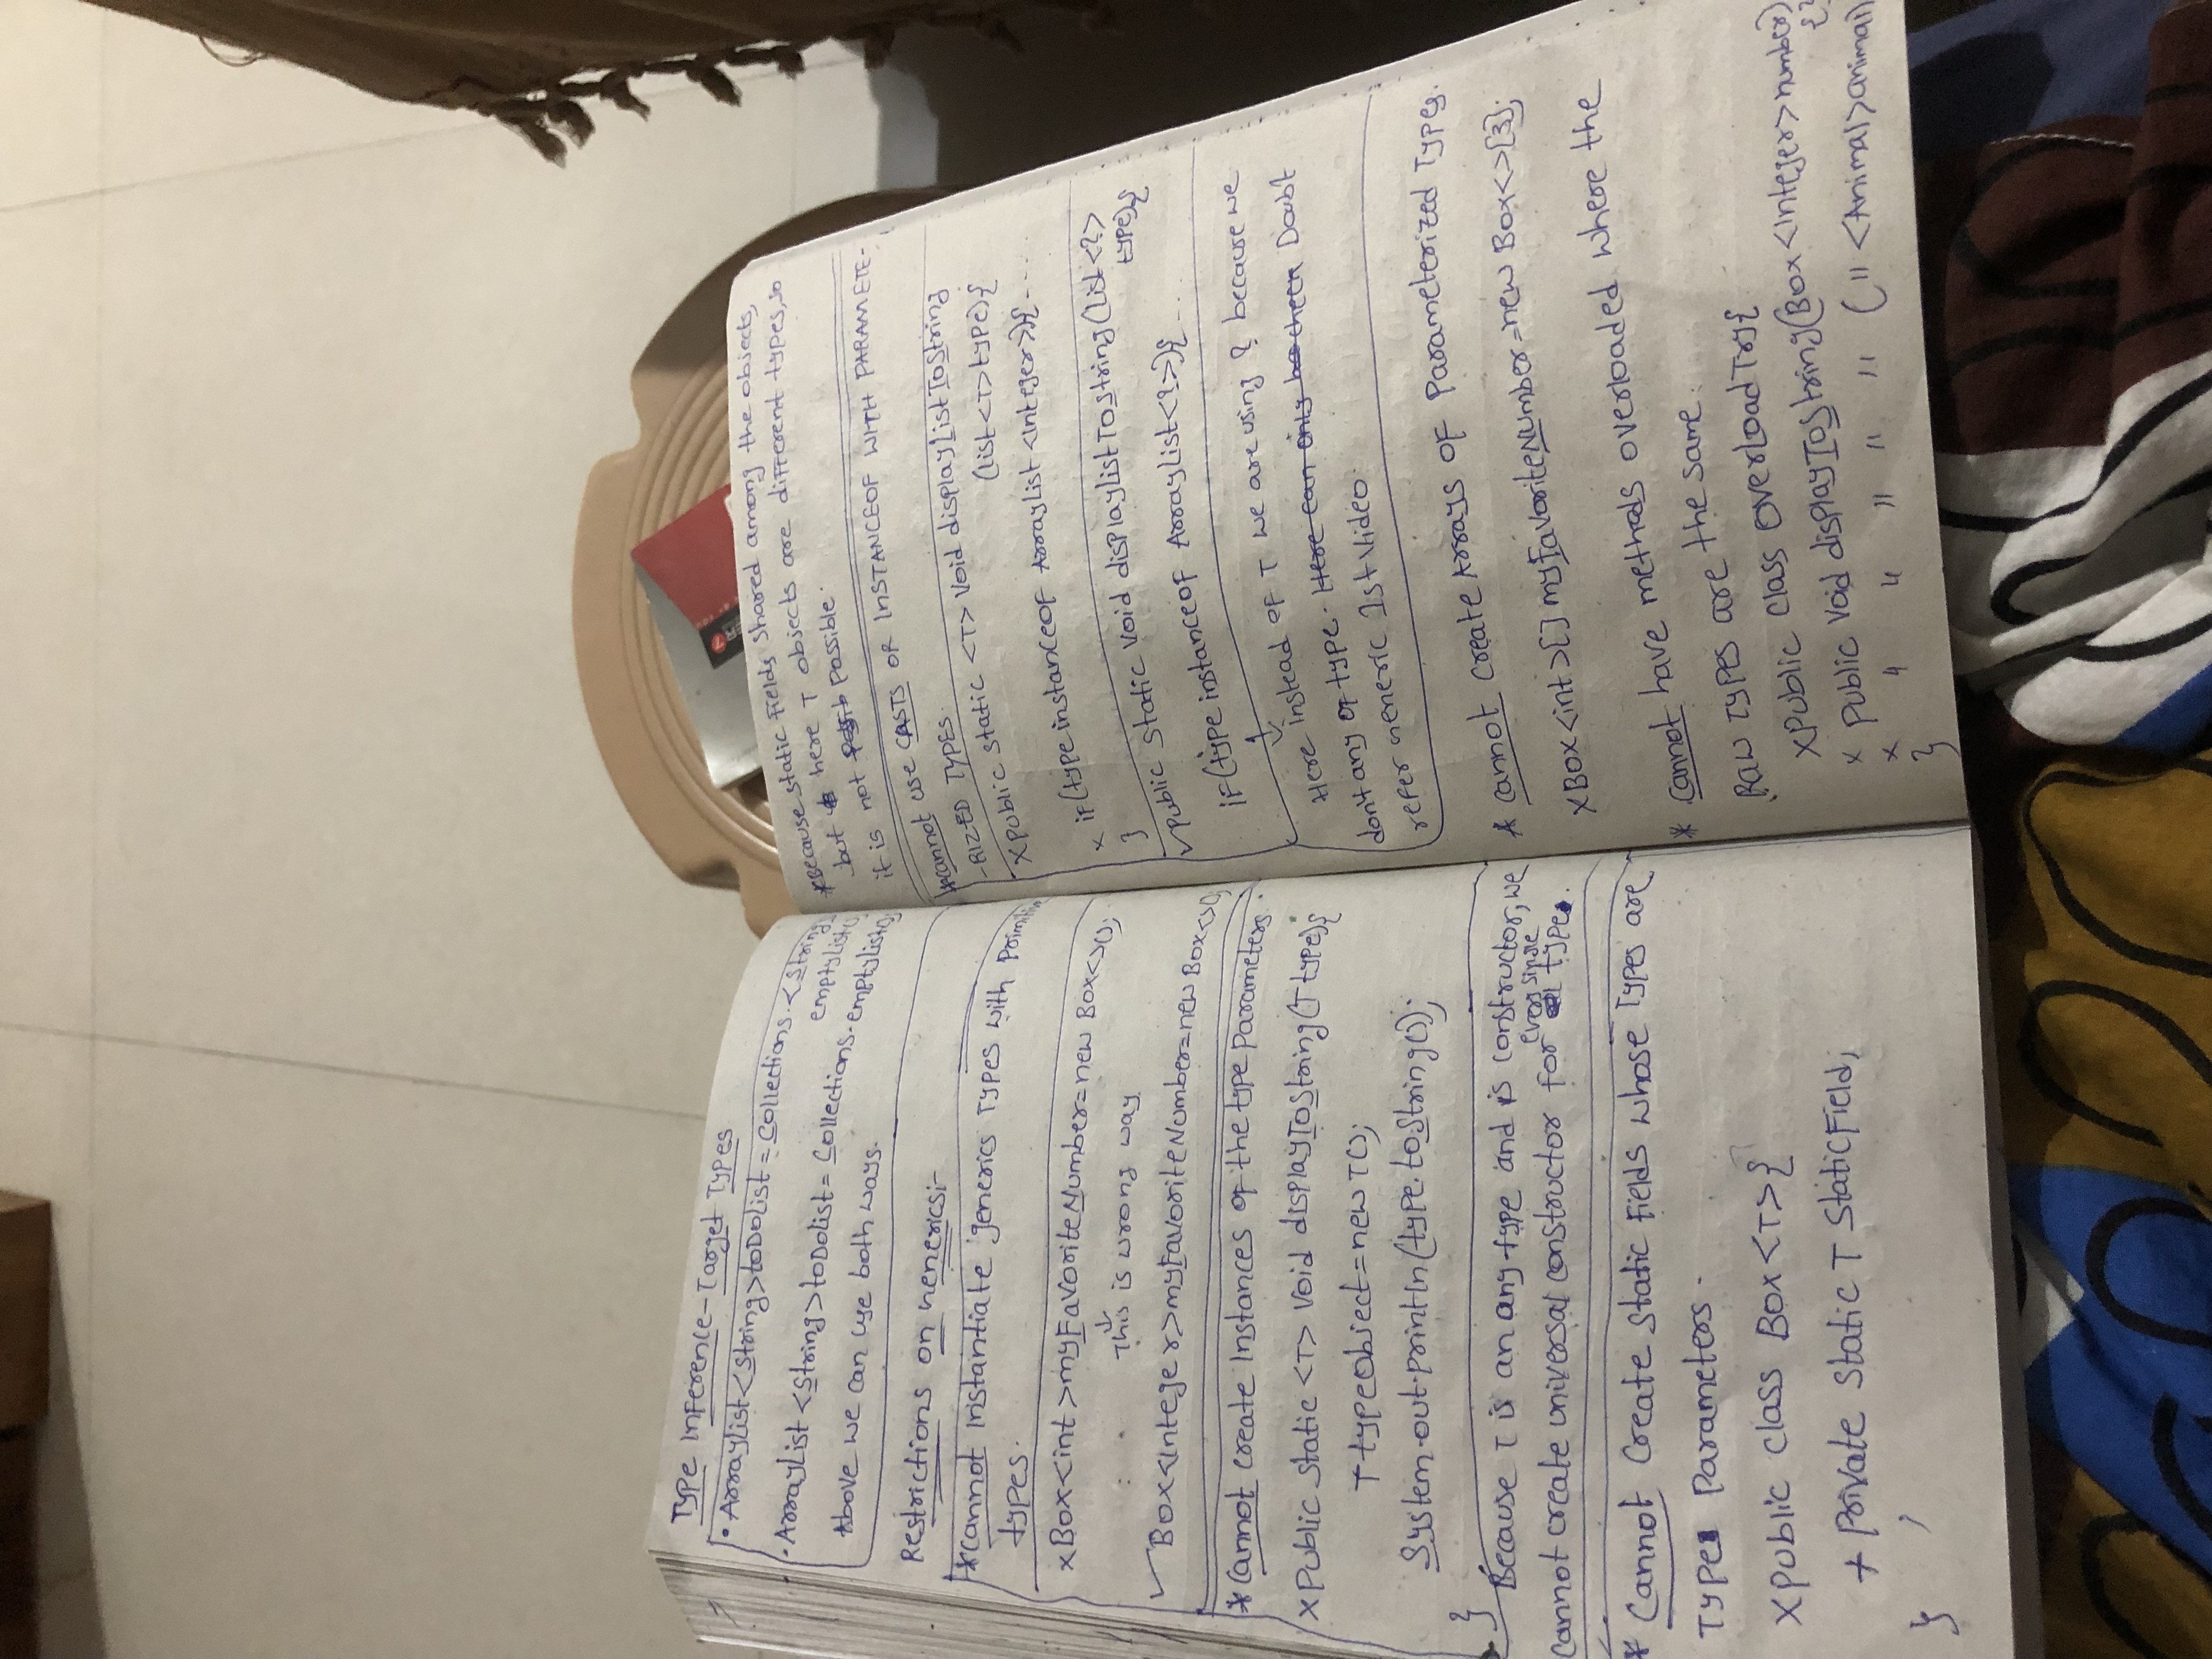 Type Inference-Target Types
• ArrayList<String>toDolist=Collections.<String
emptylist()
• ArrayList<String>toDolist=Collections.emptylist();
Above we can use both ways.
Restrictions on Generics:-
*cannot instantiate generics types with Primitive
types.
x Box<int>myFavoriteNumber=new Box<>();
↓
This is wrong way
✓ Box<Integer>myFavoriteNumber=new Box<>();
* Cannot create Instances of the type Parameters.
x Public static <T> void displayToString(T type){
T typeObject=new T();
System.out.println(type.toString());
}
Because T is an any type and is constructor, we
every single
cannot create universal constructor for all type.
* Cannot Create static Fields whose Types are
Type Parameters.
x Public class Box<T>{
+ Private Static T StaticField;
;
}
*Because static fields shared among the objects,
but here T objects are different types, so
it is not possible.
*cannot use CASTS OR INSTANCEOF WITH PARAMETE-
-RIZED TYPES.
x Public static <T> Void displayListToString
(list<T>type){
x if(type instanceof ArrayList<Integer>){ ....
}
✓ Public static void displaylistToString(List<?>
type){
if(type instanceof ArrayList<?>){ ...
↓
Here instead of T we are using ? because we
don't any of type. Here can only be check Doubt
refer Generic 1st Video.
* cannot Create Arrays of Parameterized Types.
x Box<int>[] myFavoriteNumber=new Box<>[3];
* Cannot have methods overloaded where the
Raw Types are the same.
x Public class OverLoadTry{
x Public Void displayToString(Box<Integer>number)
{}
x " " " " " ( " <Animal>animal)
}